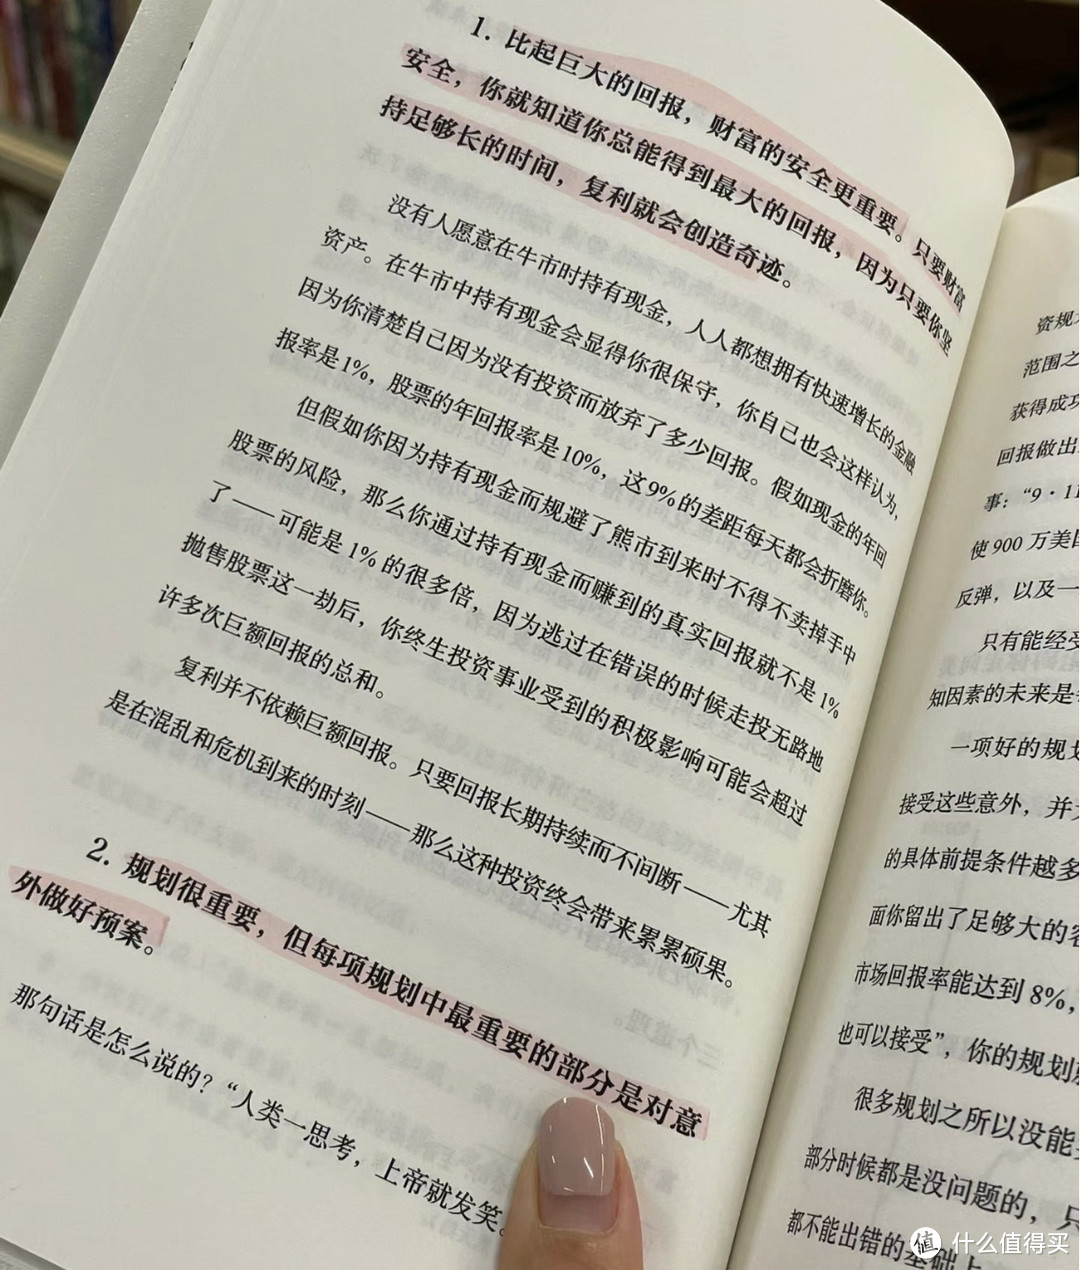 1. 比起巨大的回报，财富的安全更重要。只要财富
安全，你就知道你总能得到最大的回报，因为只要你坚
持足够长的时间，复利就会创造奇迹。
没有人愿意在牛市时持有现金，人人都想拥有快速增长的金融
资产。在牛市中持有现金会显得你很保守，你自己也会这样认为，
因为你清楚自己因为没有投资而放弃了多少回报。假如现金的年回
报率是1%，股票的年回报率是10%，这9%的差距每天都会折磨你。
但假如你因为持有现金而规避了熊市到来时不得不卖掉手中
股票的风险，那么你通过持有现金而赚到的真实回报就不是1%
了——可能是1%的很多倍，因为逃过在错误的时候走投无路地
抛售股票这一劫后，你终生投资事业受到的积极影响可能会超过
许多次巨额回报的总和。
复利并不依赖巨额回报。只要回报长期持续而不间断——尤其
是在混乱和危机到来的时刻——那么这种投资终会带来累累硕果。
2. 规划很重要，但每项规划中最重要的部分是对意
外做好预案。
那句话是怎么说的？“人类一思考，上帝就发笑。
资规
范围之
获得成功
回报做出
事：“9·11
使900万美国
反弹，以及一
只有能经受
知因素的未来是
一项好的规划
接受这些意外，并
的具体前提条件越多
面你留出了足够大的容
市场回报率能达到8%，
也可以接受”，你的规划
很多规划之所以没能
部分时候都是没问题的，只
都不能出错的基础上
值 什么值得买